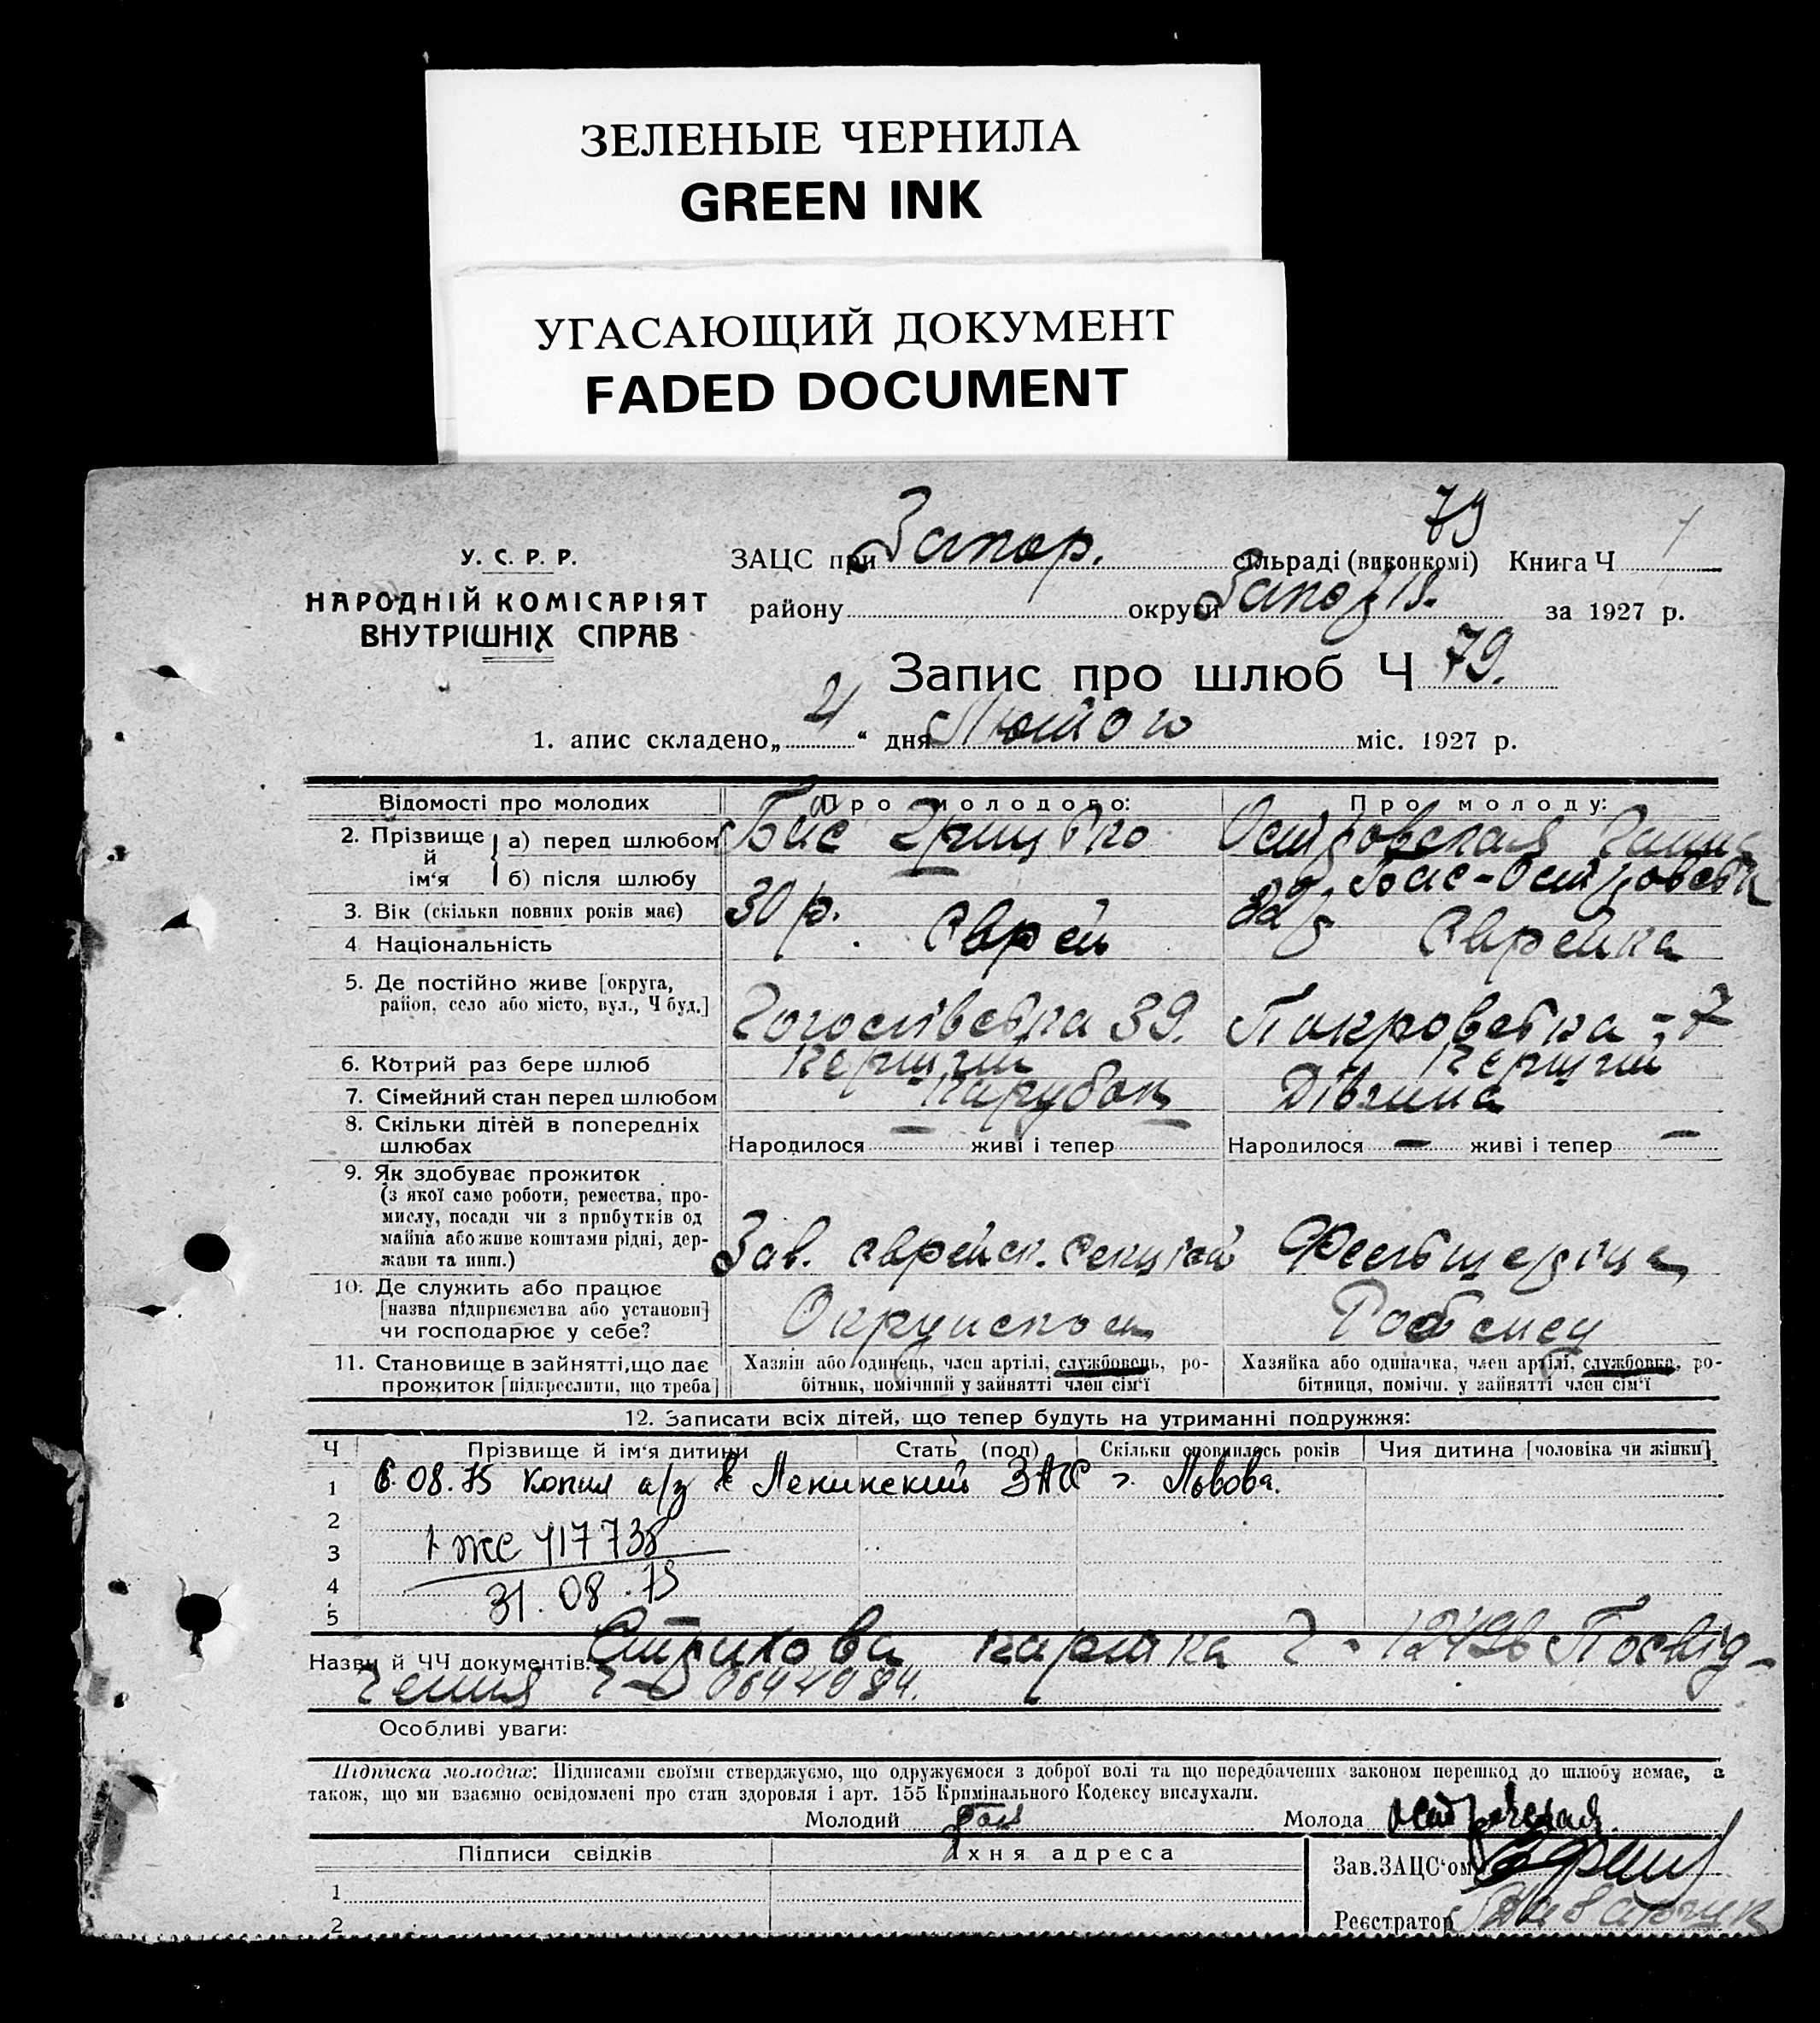 ЗЕЛЕНЫЕ ЧЕРНИЛА
GREEN INK
УГАСАЮЩИЙ ДОКУМЕНТ
FADED DOCUMENT
79
У. С. Р. Р.
НАРОДНІЙ КОМІСАРІЯТ
ВНУТРІШНІХ СПРАВ
ЗАЦС при Запор. сільраді (виконкомі) Книга Ч
району округи за 1927 р.
Запис про шлюб Ч 79.
1. апис складено „ “ дня Лютого міс. 1927 р.
Відомості про молодих Про молодого: Про молоду:
2. Прізвище й ім‘я
а) перед шлюбом Бас Грицько Островская
б) після шлюбу Бас-Островська
3. Вік (скільки повних років має) 30 р.
4 Національність Єврей Єврейка
5. Де постійно живе [округа,
район, село або місто, вул., Ч буд.] 39. Покровська - 7
6. Котрий раз бере шлюб Перший Перший
7. Сімейний стан перед шлюбом Парубок Дівчина
8. Скільки дітей в попередніх
шлюбах Народилося — живі і тепер — Народилося — живі і тепер —
9. Як здобуває прожиток
(з якої саме роботи, ремества, про-
мислу, посади чи з прибутків од
майна або живе коштами рідні, дер-
жави та инш.) Зав. єврейск. секцією Фельшериця
10. Де служить або працює
[назва підприємства або установи]
чи господарює у себе?
11. Становище в зайнятті, що дає
прожиток [підкреслити, що треба]
Хазяїн або одинець, член артілі, службовець, ро-
бітник, помічний у зайнятті член сім‘ї
Хазяйка або одиначка, член артілі, службовка, ро-
бітниця, помічн. у зайнятті член сім‘ї
12. Записати всіх дітей, що тепер будуть на утриманні подружжя:
Ч Прізвище й ім‘я дитини Стать (пол) Скільки сповнилось років Чия дитина [чоловіка чи жінки]
1 6.08.75 копия а/з в Ленинский ЗАГС г. Львова.
2
3 I ЖС 417738
4 31.08.75
5
Назви й ЧЧ документів: картка Ч - Посвід-
чення Ч
Особливі уваги:
Підписка молодих: Підписами своїми стверджуємо, що одружуємося з доброї волі та що передбачених законом перешкод до шлюбу немає, а
також, що ми взаємно освідомлені про стан здоровля і арт. 155 Кримінального Кодексу вислухали.
Молодий Бас Молода Островская
Підписи свідків Їхня адреса
Зав.ЗАЦС‘ом
1
Реєстратор
2